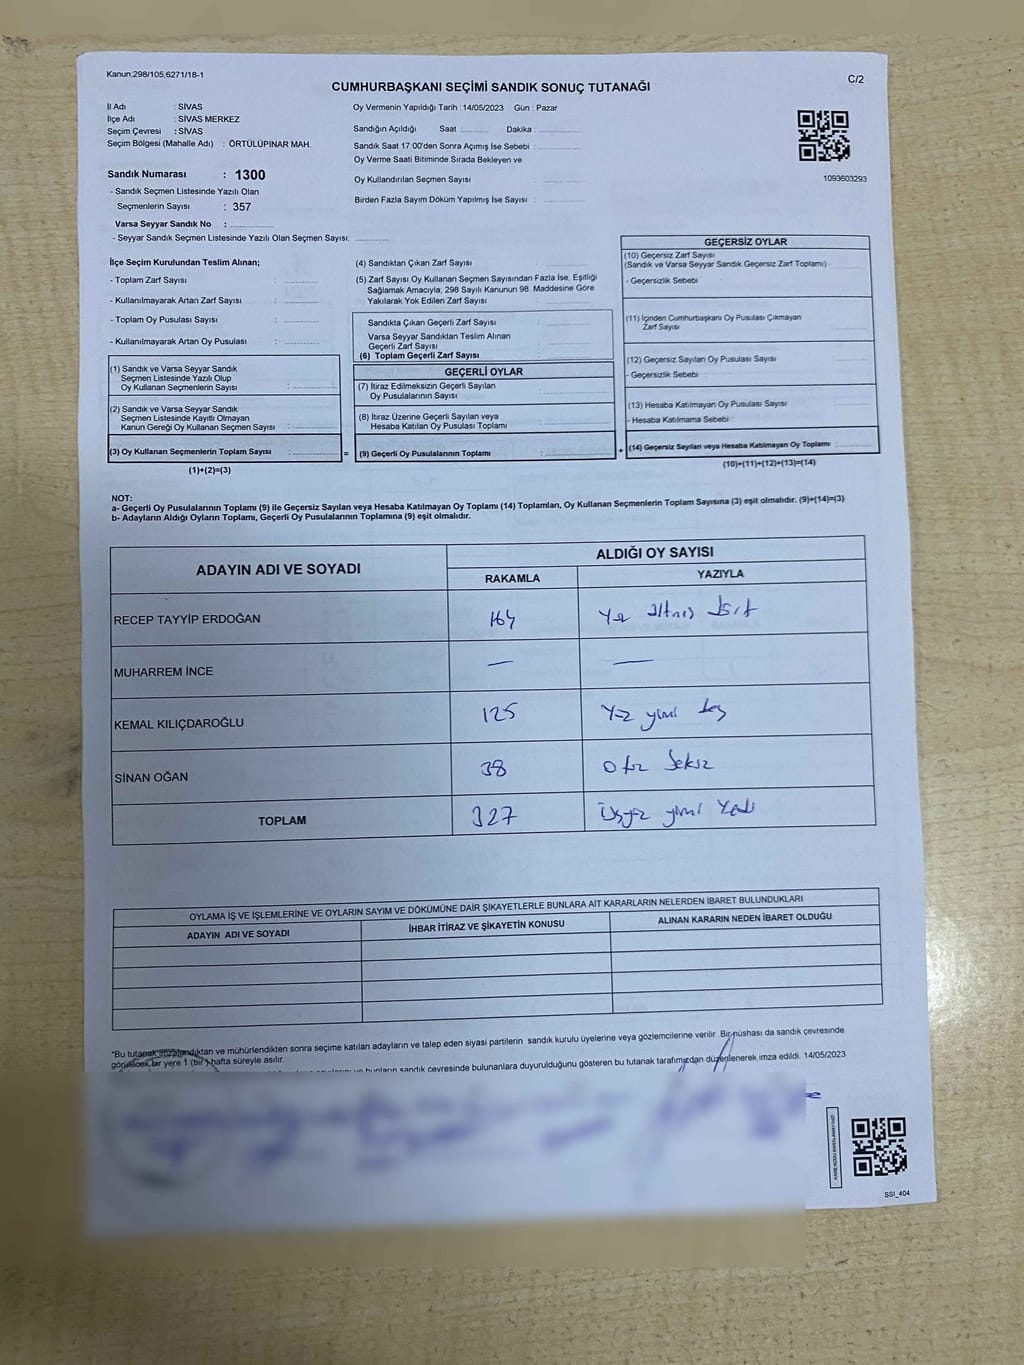 Kanun;298/105;6271/18-1
C/2
CUMHURBAŞKANI SEÇİMİ SANDIK SONUÇ TUTANAĞI
İl Adı : SİVAS
İlçe Adı : SİVAS MERKEZ
Seçim Çevresi : SİVAS
Seçim Bölgesi (Mahalle Adı) : ÖRTÜLÜPINAR MAH.
Sandık Numarası : 1300
- Sandık Seçmen Listesinde Yazılı Olan
Seçmenlerin Sayısı : 357
Varsa Seyyar Sandık No :
- Seyyar Sandık Seçmen Listesinde Yazılı Olan Seçmen Sayısı:
Oy Vermenin Yapıldığı Tarih :14/05/2023 Gün : Pazar
Sandığın Açıldığı Saat : Dakika :
Sandık Saat 17:00'den Sonra Açımış İse Sebebi :
Oy Verme Saati Bitiminde Sırada Bekleyen ve
Oy Kullandırılan Seçmen Sayısı :
Birden Fazla Sayım Döküm Yapılmış İse Sayısı :
1093603293
İlçe Seçim Kurulundan Teslim Alınan;
- Toplam Zarf Sayısı :
- Kullanılmayarak Artan Zarf Sayısı :
- Toplam Oy Pusulası Sayısı :
- Kullanılmayarak Artan Oy Pusulası :
(1) Sandık ve Varsa Seyyar Sandık
Seçmen Listesinde Yazılı Olup
Oy Kullanan Seçmenlerin Sayısı :
(2) Sandık ve Varsa Seyyar Sandık
Seçmen Listesinde Kayıtlı Olmayan
Kanun Gereği Oy Kullanan Seçmen Sayısı :
(3) Oy Kullanan Seçmenlerin Toplam Sayısı :
(1)+(2)=(3)
(4) Sandıktan Çıkan Zarf Sayısı
(5) Zarf Sayısı Oy Kullanan Seçmen Sayısından Fazla İse, Eşitliği
Sağlamak Amacıyla, 298 Sayılı Kanunun 98. Maddesine Göre
Yakılarak Yok Edilen Zarf Sayısı :
Sandıkta Çıkan Geçerli Zarf Sayısı :
Varsa Seyyar Sandıktan Teslim Alınan
Geçerli Zarf Sayısı
(6) Toplam Geçerli Zarf Sayısı
GEÇERLİ OYLAR
(7) İtiraz Edilmeksizin Geçerli Sayılan
Oy Pusulalarının Sayısı :
(8) İtiraz Üzerine Geçerli Sayılan veya
Hesaba Katılan Oy Pusulası Toplamı :
= (9) Geçerli Oy Pusulalarının Toplamı :
GEÇERSİZ OYLAR
(10) Geçersiz Zarf Sayısı
(Sandık ve Varsa Seyyar Sandık Geçersiz Zarf Toplamı)
- Geçersizlik Sebebi
(11) İçinden Cumhurbaşkanı Oy Pusulası Çıkmayan
Zarf Sayısı
(12) Geçersiz Sayılan Oy Pusulası Sayısı
- Geçersizlik Sebebi
(13) Hesaba Katılmayan Oy Pusulası Sayısı
- Hesaba Katılmama Sebebi
+ (14) Geçersiz Sayılan veya Hesaba Katılmayan Oy Toplamı
(10)+(11)+(12)+(13)=(14)
NOT:
a- Geçerli Oy Pusulalarının Toplamı (9) ile Geçersiz Sayılan veya Hesaba Katılmayan Oy Toplamı (14) Toplamları, Oy Kullanan Seçmenlerin Toplam Sayısına (3) eşit olmalıdır. (9)+(14)=(3)
b- Adayların Aldığı Oyların Toplamı, Geçerli Oy Pusulalarının Toplamına (9) eşit olmalıdır.
ADAYIN ADI VE SOYADI ALDIĞI OY SAYISI
RAKAMLA YAZIYLA
RECEP TAYYİP ERDOĞAN 164 Yüz altmış dört
MUHARREM İNCE — —
KEMAL KILIÇDAROĞLU 125 Yüz yirmi beş
SİNAN OĞAN 38 Otuz Sekiz
TOPLAM 327 Üçyüz yirmi Yedi
OYLAMA İŞ VE İŞLEMLERİNE VE OYLARIN SAYIM VE DÖKÜMÜNE DAİR ŞİKAYETLERLE BUNLARA AİT KARARLARIN NELERDEN İBARET BULUNDUKLARI
ADAYIN ADI VE SOYADI İHBAR İTİRAZ VE ŞİKAYETİN KONUSU ALINAN KARARIN NEDEN İBARET OLDUĞU
*Bu tutanak imzalandıktan ve mühürlendikten sonra seçime katılan adayların ve talep eden siyasi partilerin sandık kurulu üyelerine veya gözlemcilerine verilir Bir nüshası da sandık çevresinde
görülecek bir yere 1 (bir) hafta süreyle asılır.
bunların sandık çevresinde bulunanlara duyurulduğunu gösteren bu tutanak tarafımızdan düzenlenerek imza edildi. 14/05/2023
SSI_404